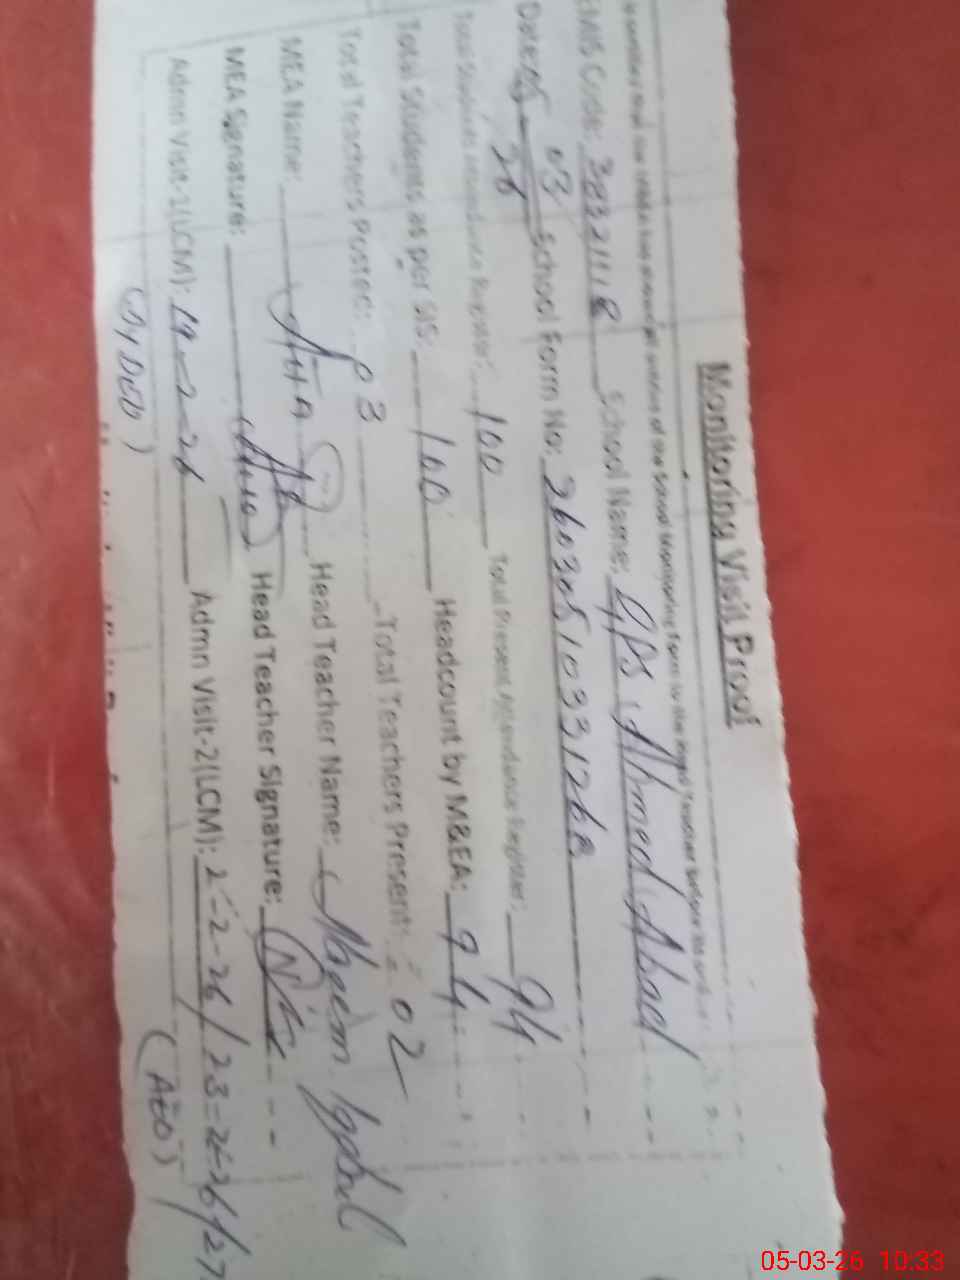 Monitoring Visit Proof
EMIS Code: 38321118 School Name: GPS Ahmed Abad
Date: 05 03 26 School Form No: 260305103312 68
Total Students Attendance Register: 100 Total Present Attendance Register: 94
Total Students as per SIS: 100 Headcount by M&EA: 94
Total Teachers Posted: 03 Total Teachers Present: 02
MEA Name: Head Teacher Name: Naeem Iqbal
MEA Signature: Head Teacher Signature:
Admn Visit-1(LCM): 19-2-26 Admn Visit-2(LCM): 2-2-26/23-2-26/27
(Dy DEO) (AEO)
05-03-26 10:33